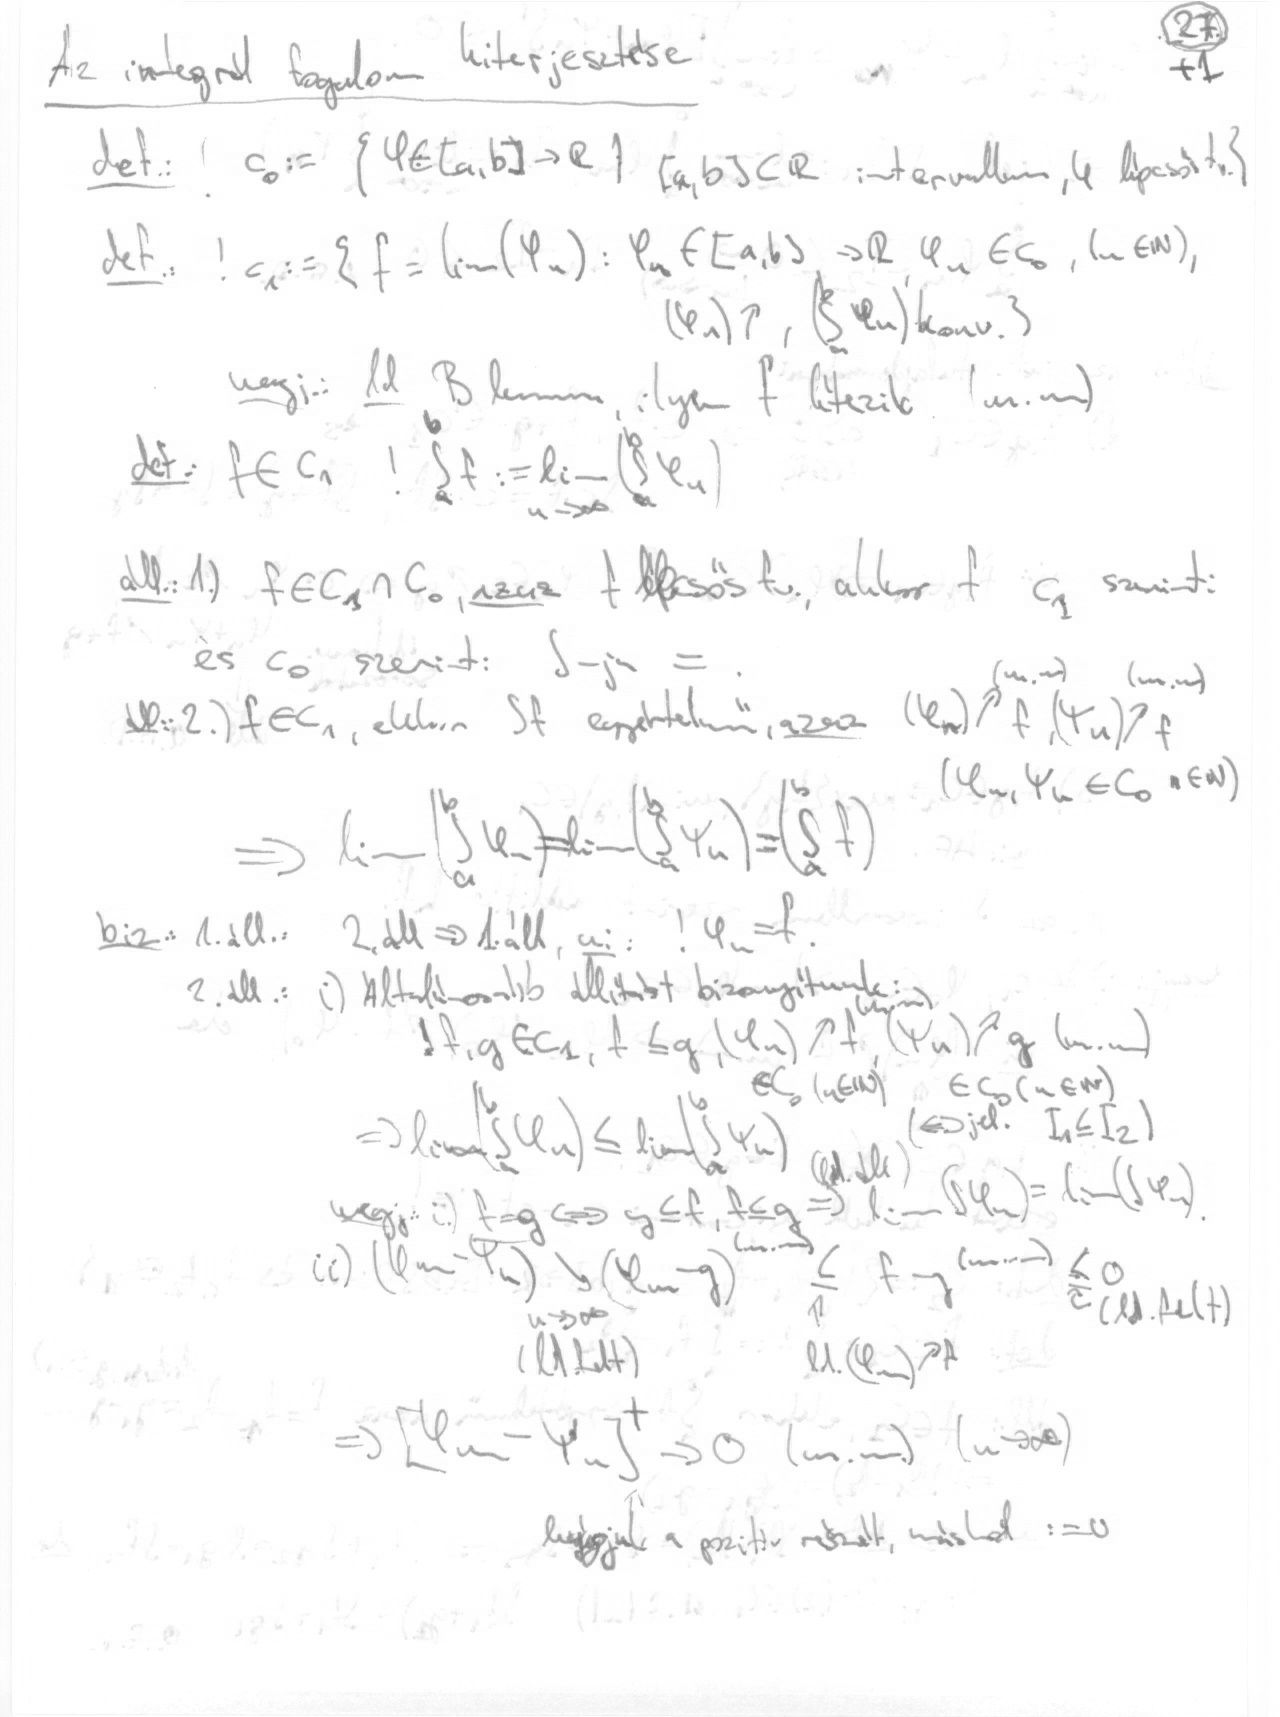 Az integrál fogalom kiterjesztése
27
+1
def.: ! C₀ := { φ∈[a,b]→ℝ } [a,b]⊂ℝ intervallum, φ lépcsős fv. }
def.: ! C₁ := { f = lim(φₙ) : φₙ∈[a,b] →ℝ, φₙ ∈ C₀, (n∈ℕ),
(φₙ)↑, (∫ₐᵇ φₙ) konv. }
megj.: ld B lemma, ilyen f létezik (m.m)
def.: f∈C₁ ! ∫ₐᵇ f := lim_{n→∞} (∫ₐᵇ φₙ)
áll.: 1.) f∈C₁∩C₀, azaz f lépcsős fv., akkor f C₁ szerinti
és C₀ szerinti ∫-ja =.
áll.: 2.) f∈C₁, ekkor ∫f egyértelmű, azaz (φₙ)↗f (m.m), (ψₙ)↗f (m.m)
(φₙ, ψₙ ∈ C₀ n∈ℕ)
⇒ lim(∫ₐᵇ φₙ) = lim(∫ₐᵇ ψₙ) = (∫ₐᵇ f)
biz.: 1. áll.: 2. áll ⇒ 1. áll, ui: ! φₙ = f.
2. áll.: i) Általánosabb állítást bizonyítunk:
! f, g ∈ C₁, f ≤ g, (φₙ)↗f (m.m), (ψₙ)↗g (m.m)
∈C₀ (n∈ℕ) ∈C₀ (n∈ℕ)
⇒ lim(∫ₐᵇ φₙ) ≤ lim(∫ₐᵇ ψₙ) (⇔ jel. I₁ ≤ I₂)
megj.: i.) f=g ⇔ g≤f, f≤g ⇒ (ld. áll) lim(∫φₙ) = lim(∫ψₙ).
ii) (φₘ-ψₙ) ↘ (φₘ-g) (m.m) ≤ f-g (m.m) ≤ 0
n→∞ ↑ (ld. felt)
(ld. felt) ld. (φₘ)↗f
⇒ [φₘ - ψₙ]⁺ → 0 (m.m.) (n→∞)
a pozitív részét, máshol := 0